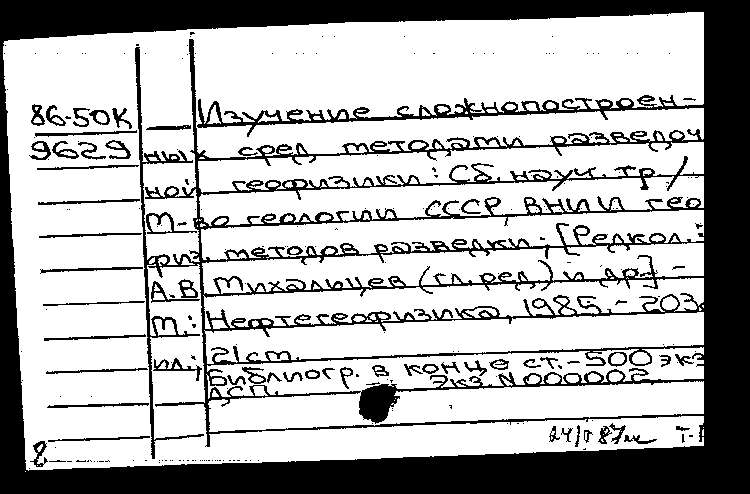 86-50К Изучение сложнопостроен-
9629 ных сред методами разведоч
ной геофизики: Сб. науч. тр./
М-во геологии СССР, ВНИИ гео
физ. методов разведки; [Редкол.:
А.В. Михальцев (гл. ред.) и др.]. -
М.: Нефтегеофизика, 1985. - 203с
ил.; 21 cm.
Библиогр. в конце ст. - 500 экз
ДСП. Экз. N 000002
8